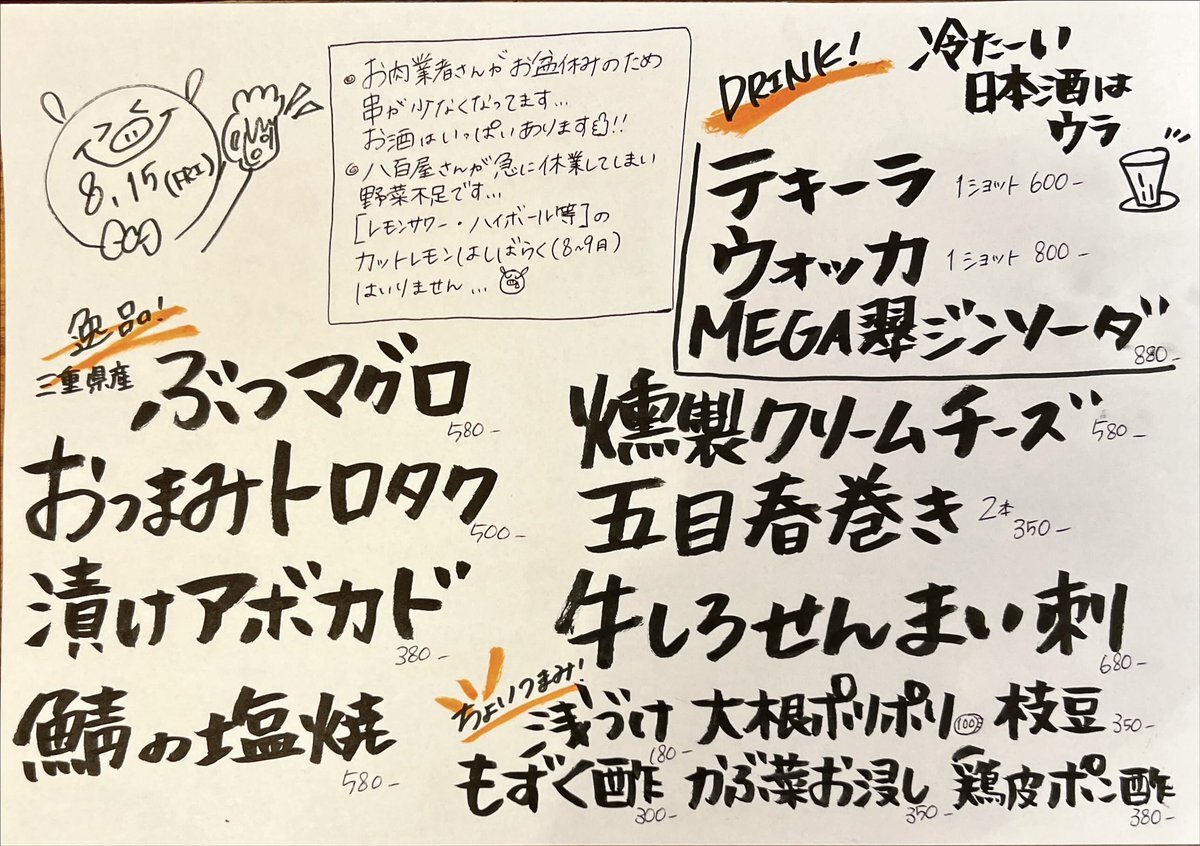 8.15(FRI)
◎お肉業者さんがお盆休みのため
串が少なくなってます…
お酒はいっぱいあります!!
◎八百屋さんが急に休業してしまい
野菜不足です…
[レモンサワー・ハイボール等]の
カットレモンはしばらく(8~9月)
はいりません…
DRINK!
冷たーい
日本酒は
ウラ
テキーラ 1ショット 600-
ウォッカ 1ショット 800-
MEGA翠ジンソーダ 880-
逸品!
三重県産
ぶつマグロ 580-
おつまみトロタク 500-
漬けアボカド 380-
鯖の塩焼 580-
燻製クリームチーズ 580-
五目春巻き 2本 350-
牛しろせんまい刺 680-
ちょいつまみ!
浅づけ 180- 大根ポリポリ 100 枝豆 350-
もずく酢 300- かぶ菜お浸し 350- 鶏皮ポン酢 380-